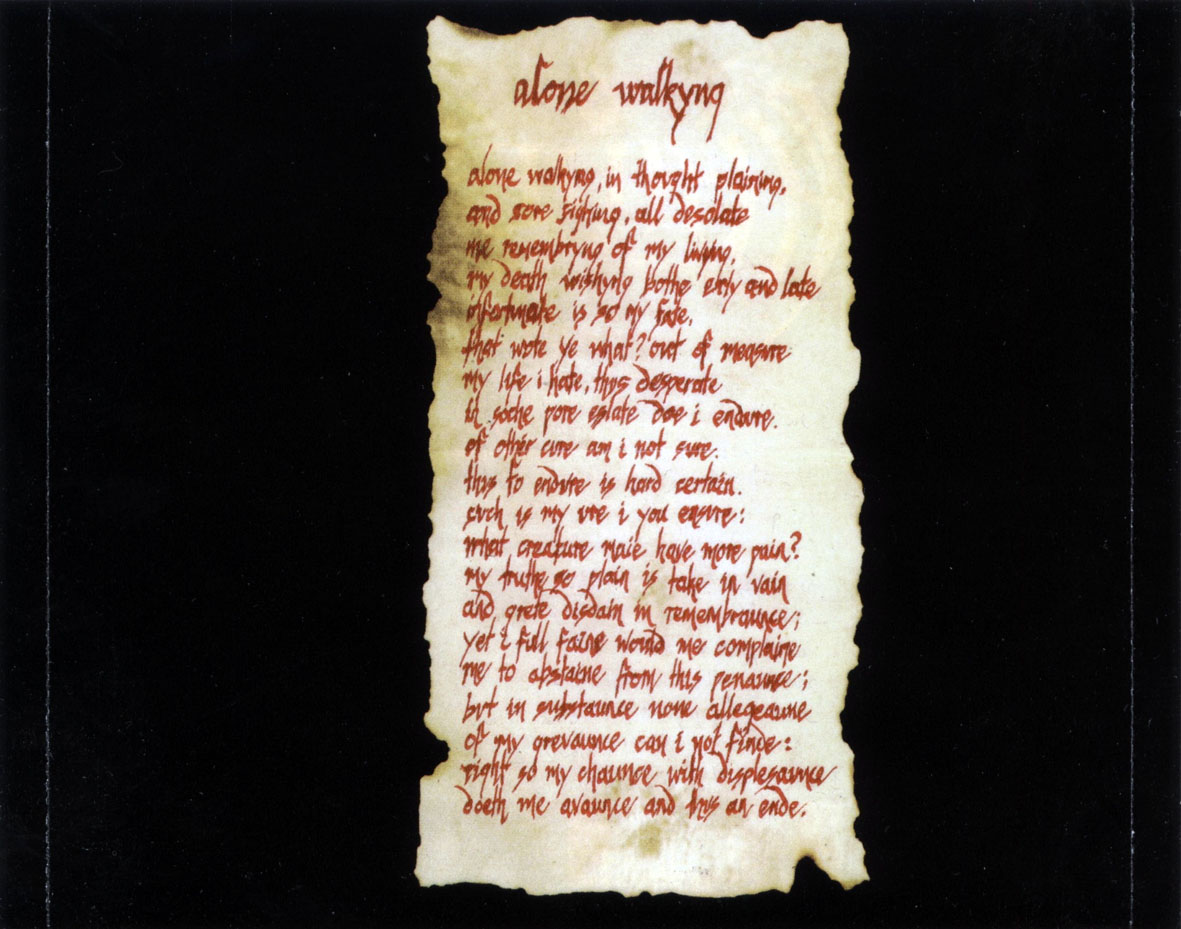 alone walkyng
alone walkyng, in thought plaining,
and sore sighing, all desolate
me remembryng of my living,
my death wishyng bothe erly and late
infortunate is so my fate,
that wote ye what? out of measure
my life i hate, thus desperate
in soche pore estate doe i endure.
of other cure am i not sure.
thus to endure is hard certain.
such is my ure i you ensure:
what creature maie have more pain?
my truthe so plain is take in vain
and grete disdain in remembraunce;
yet i full faine would me complaine
me to abstaine from this penaunce;
but in substaunce none allegeaunce
of my grevaunce can i not finde:
right so my chaunce with displesaunce
doeth me avaunce and thus an ende.